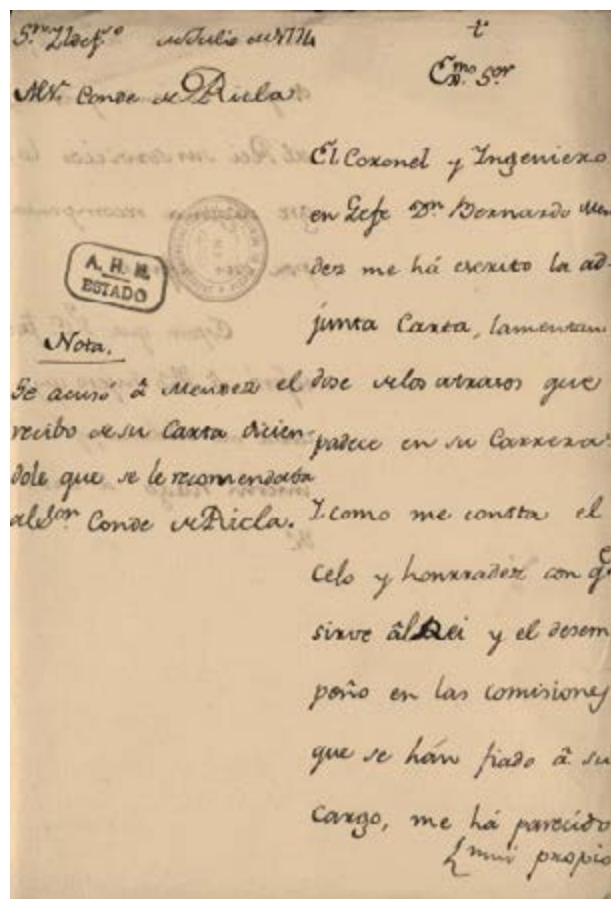 de Julio de 1774
Al Sr. Conde de Ricla.
A. H. N.
ESTADO
Nota.
Se acusó â Mendez el
recibo de su Carta dicien-
dole que se le recomendaba
al Sor Conde de Ricla.
t
Exmo. Sor
El Coronel y Ingeniero
en Gefe Dn. Bernardo Men
dez me há escrito la ad-
junta Carta, lamentan
dose de los atrasos que
padece en su Carrera.
I como me consta el
celo y honrradez con q.e
sirve âl Rei y el desem
peño en las comisiones
que se hán fiado â su
cargo, me há parecido
mui propio